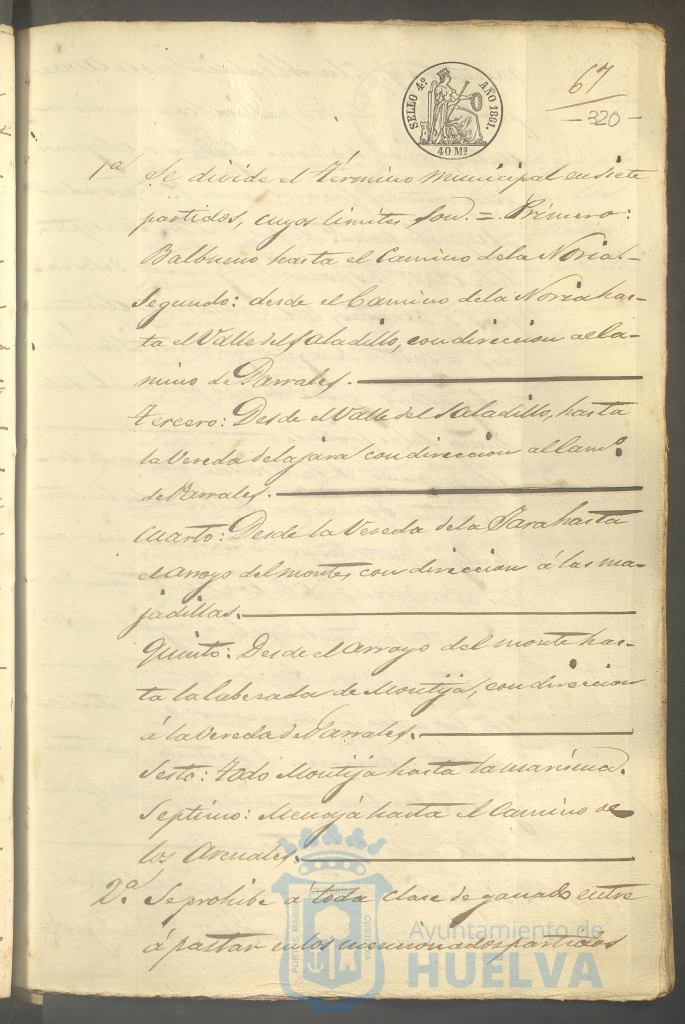 SELLO 4.º AÑO 1861.
40 Ms
67
- 320 -
1ª Se divide el término municipal en siete
partidos, cuyos limites son. = Primero:
Balbueno hasta el Camino dela Noria.-
Segundo: desde el Camino dela Noria has-
ta el Valle del Saladillo, con direccion al Ca-
mino de Parrales.
tercero: Desde el Valle del Saladillo, hasta
la Vereda dela jara con direccion al Camº.
de Parrales.
Cuarto: Desde la Vereda de la Jara hasta
el arroyo del monte, con direccion á las ma-
jadillas.
Quinto: Desde el arroyo del monte has-
ta la laberada de Montija, con direccion
á la Vereda de Parrales.
Sesto: todo Montija hasta la marisma.
Septimo: hasta el Camino de
los Arenales.
2ª. Se prohibe á toda clase de ganado entre
á pastar en los mencionados partidos
PORTUS MARIS
ET TERRÆ CUSTODIA
Ayuntamiento de
HUELVA